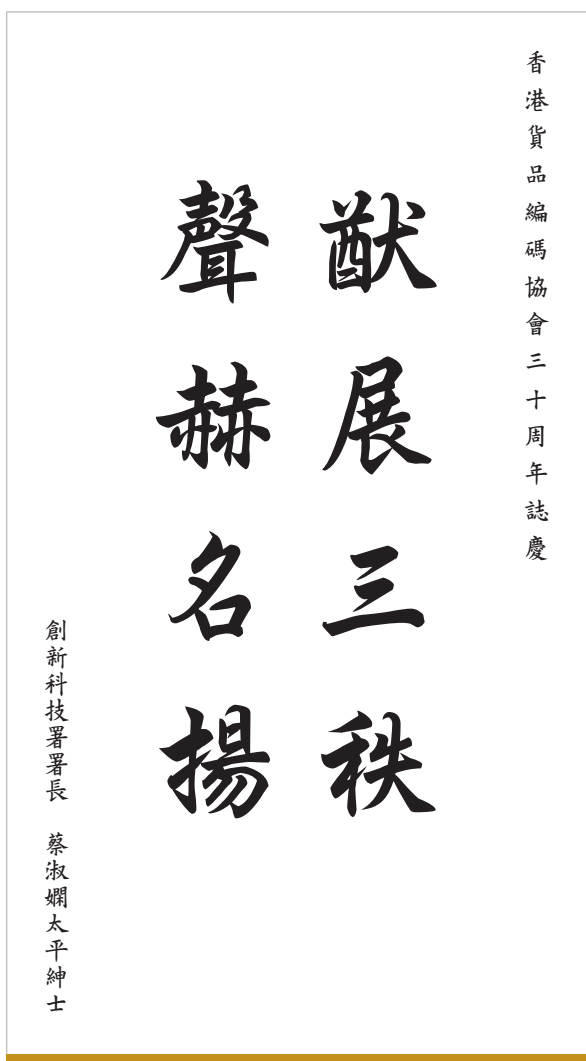 香港貨品編碼協會三十周年誌慶
猷展三秩
聲赫名揚
創新科技署署長 蔡淑嫻太平紳士